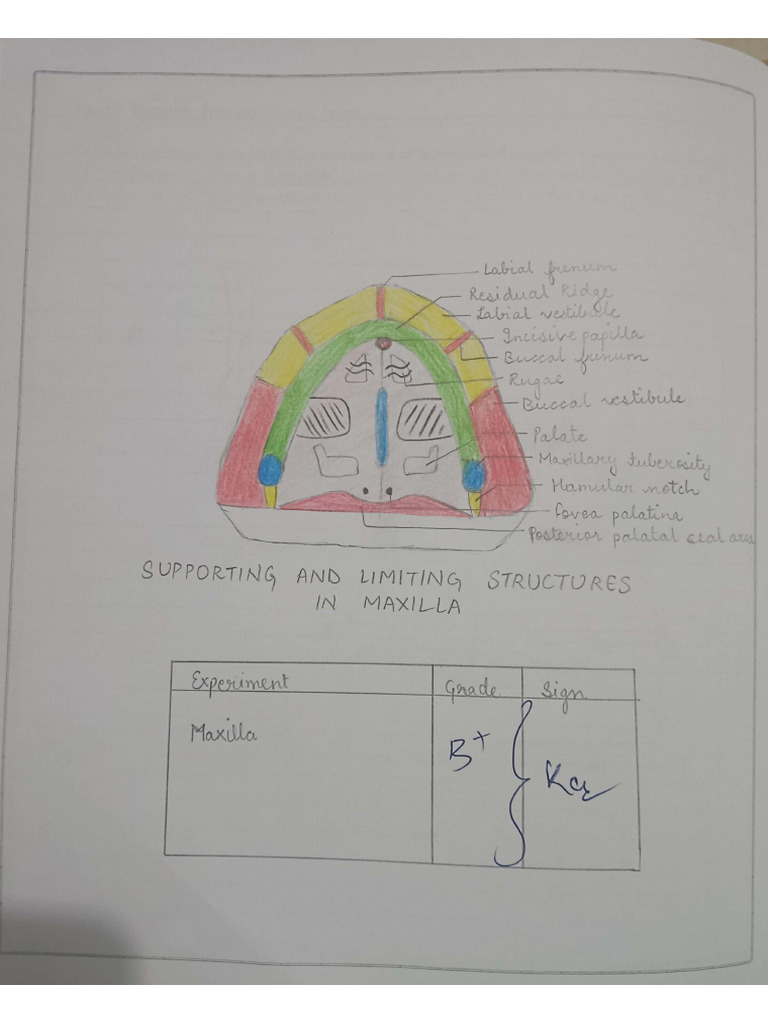 Labial frenum
Residual Ridge
Labial vestibule
Incisive papilla
Buccal frenum
Rugae
Buccal vestibule
Palate
Maxillary tuberosity
Hamular notch
fovea palatina
Posterior palatal seal area
SUPPORTING AND LIMITING STRUCTURES
IN MAXILLA
Experiment Grade Sign
Maxilla B+